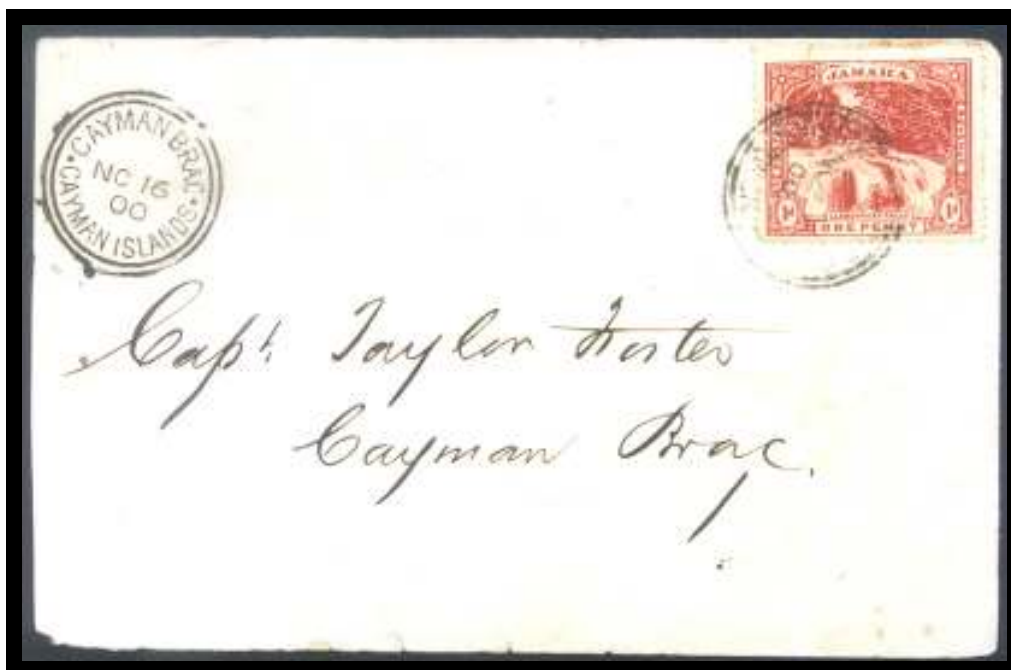 CAYMAN BRAC
NO 16
00
CAYMAN ISLANDS
JAMAICA
1d
1d
ONE PENNY
Capt. Taylor Foster
Cayman Brac.